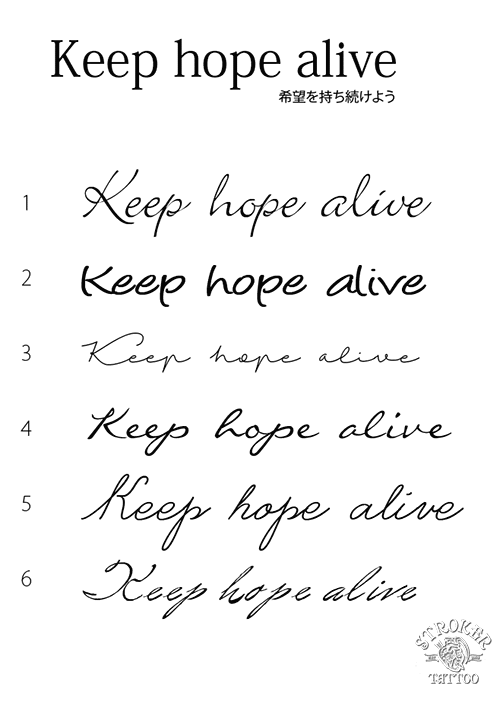 Keep hope alive
希望を持ち続けよう
1 Keep hope alive
2 Keep hope alive
3 Keep hope alive
4 Keep hope alive
5 Keep hope alive
6 Keep hope alive
STROKER
TATTOO